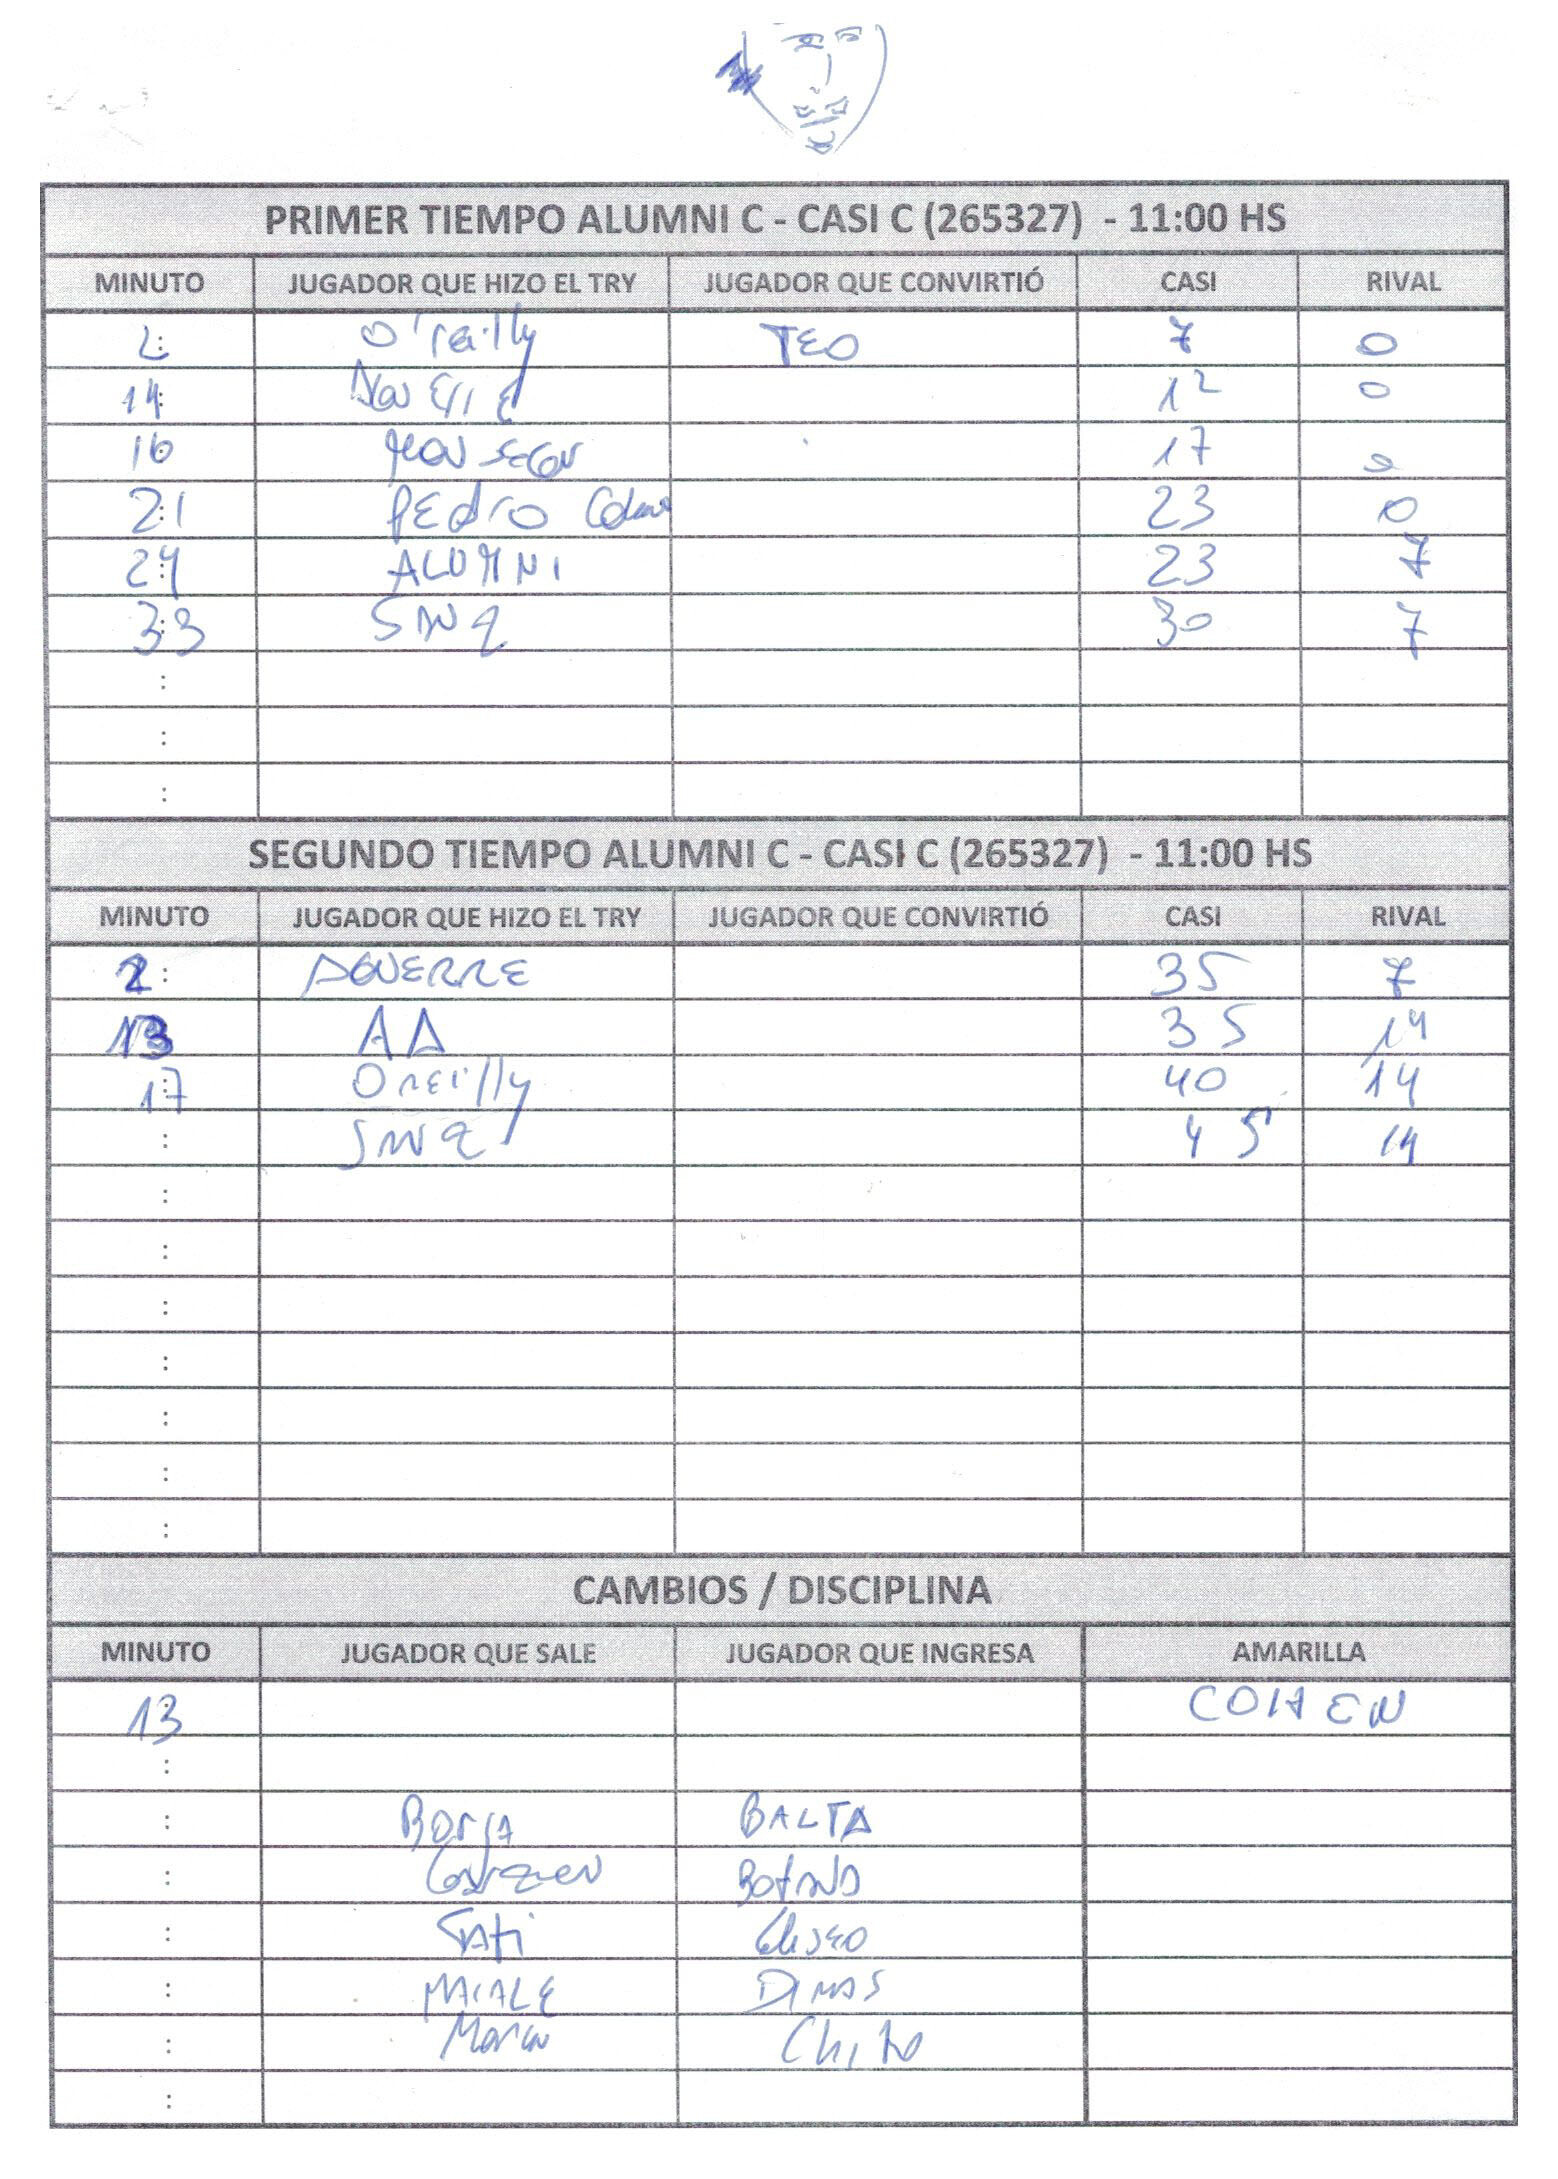 PRIMER TIEMPO ALUMNI C - CASI C (265327) - 11:00 HS
MINUTO JUGADOR QUE HIZO EL TRY JUGADOR QUE CONVIRTIÓ CASI RIVAL
2: O'reilly TEO 7 0
14: 12 0
16 17 0
21: PEdro 23 0
24: ALUMNI 23 7
33: 30 7
:
:
:
SEGUNDO TIEMPO ALUMNI C - CASI C (265327) - 11:00 HS
MINUTO JUGADOR QUE HIZO EL TRY JUGADOR QUE CONVIRTIÓ CASI RIVAL
2: AGUERRE 35 7
13 AA 35 14
17: Oreilly 40 14
: 45 14
:
:
:
:
:
:
:
CAMBIOS / DISCIPLINA
MINUTO JUGADOR QUE SALE JUGADOR QUE INGRESA AMARILLA
13: COHEN
:
: BORJA BALTA
:
: TATi Eliseo
: MAIALE DIMAS
: Chito
: